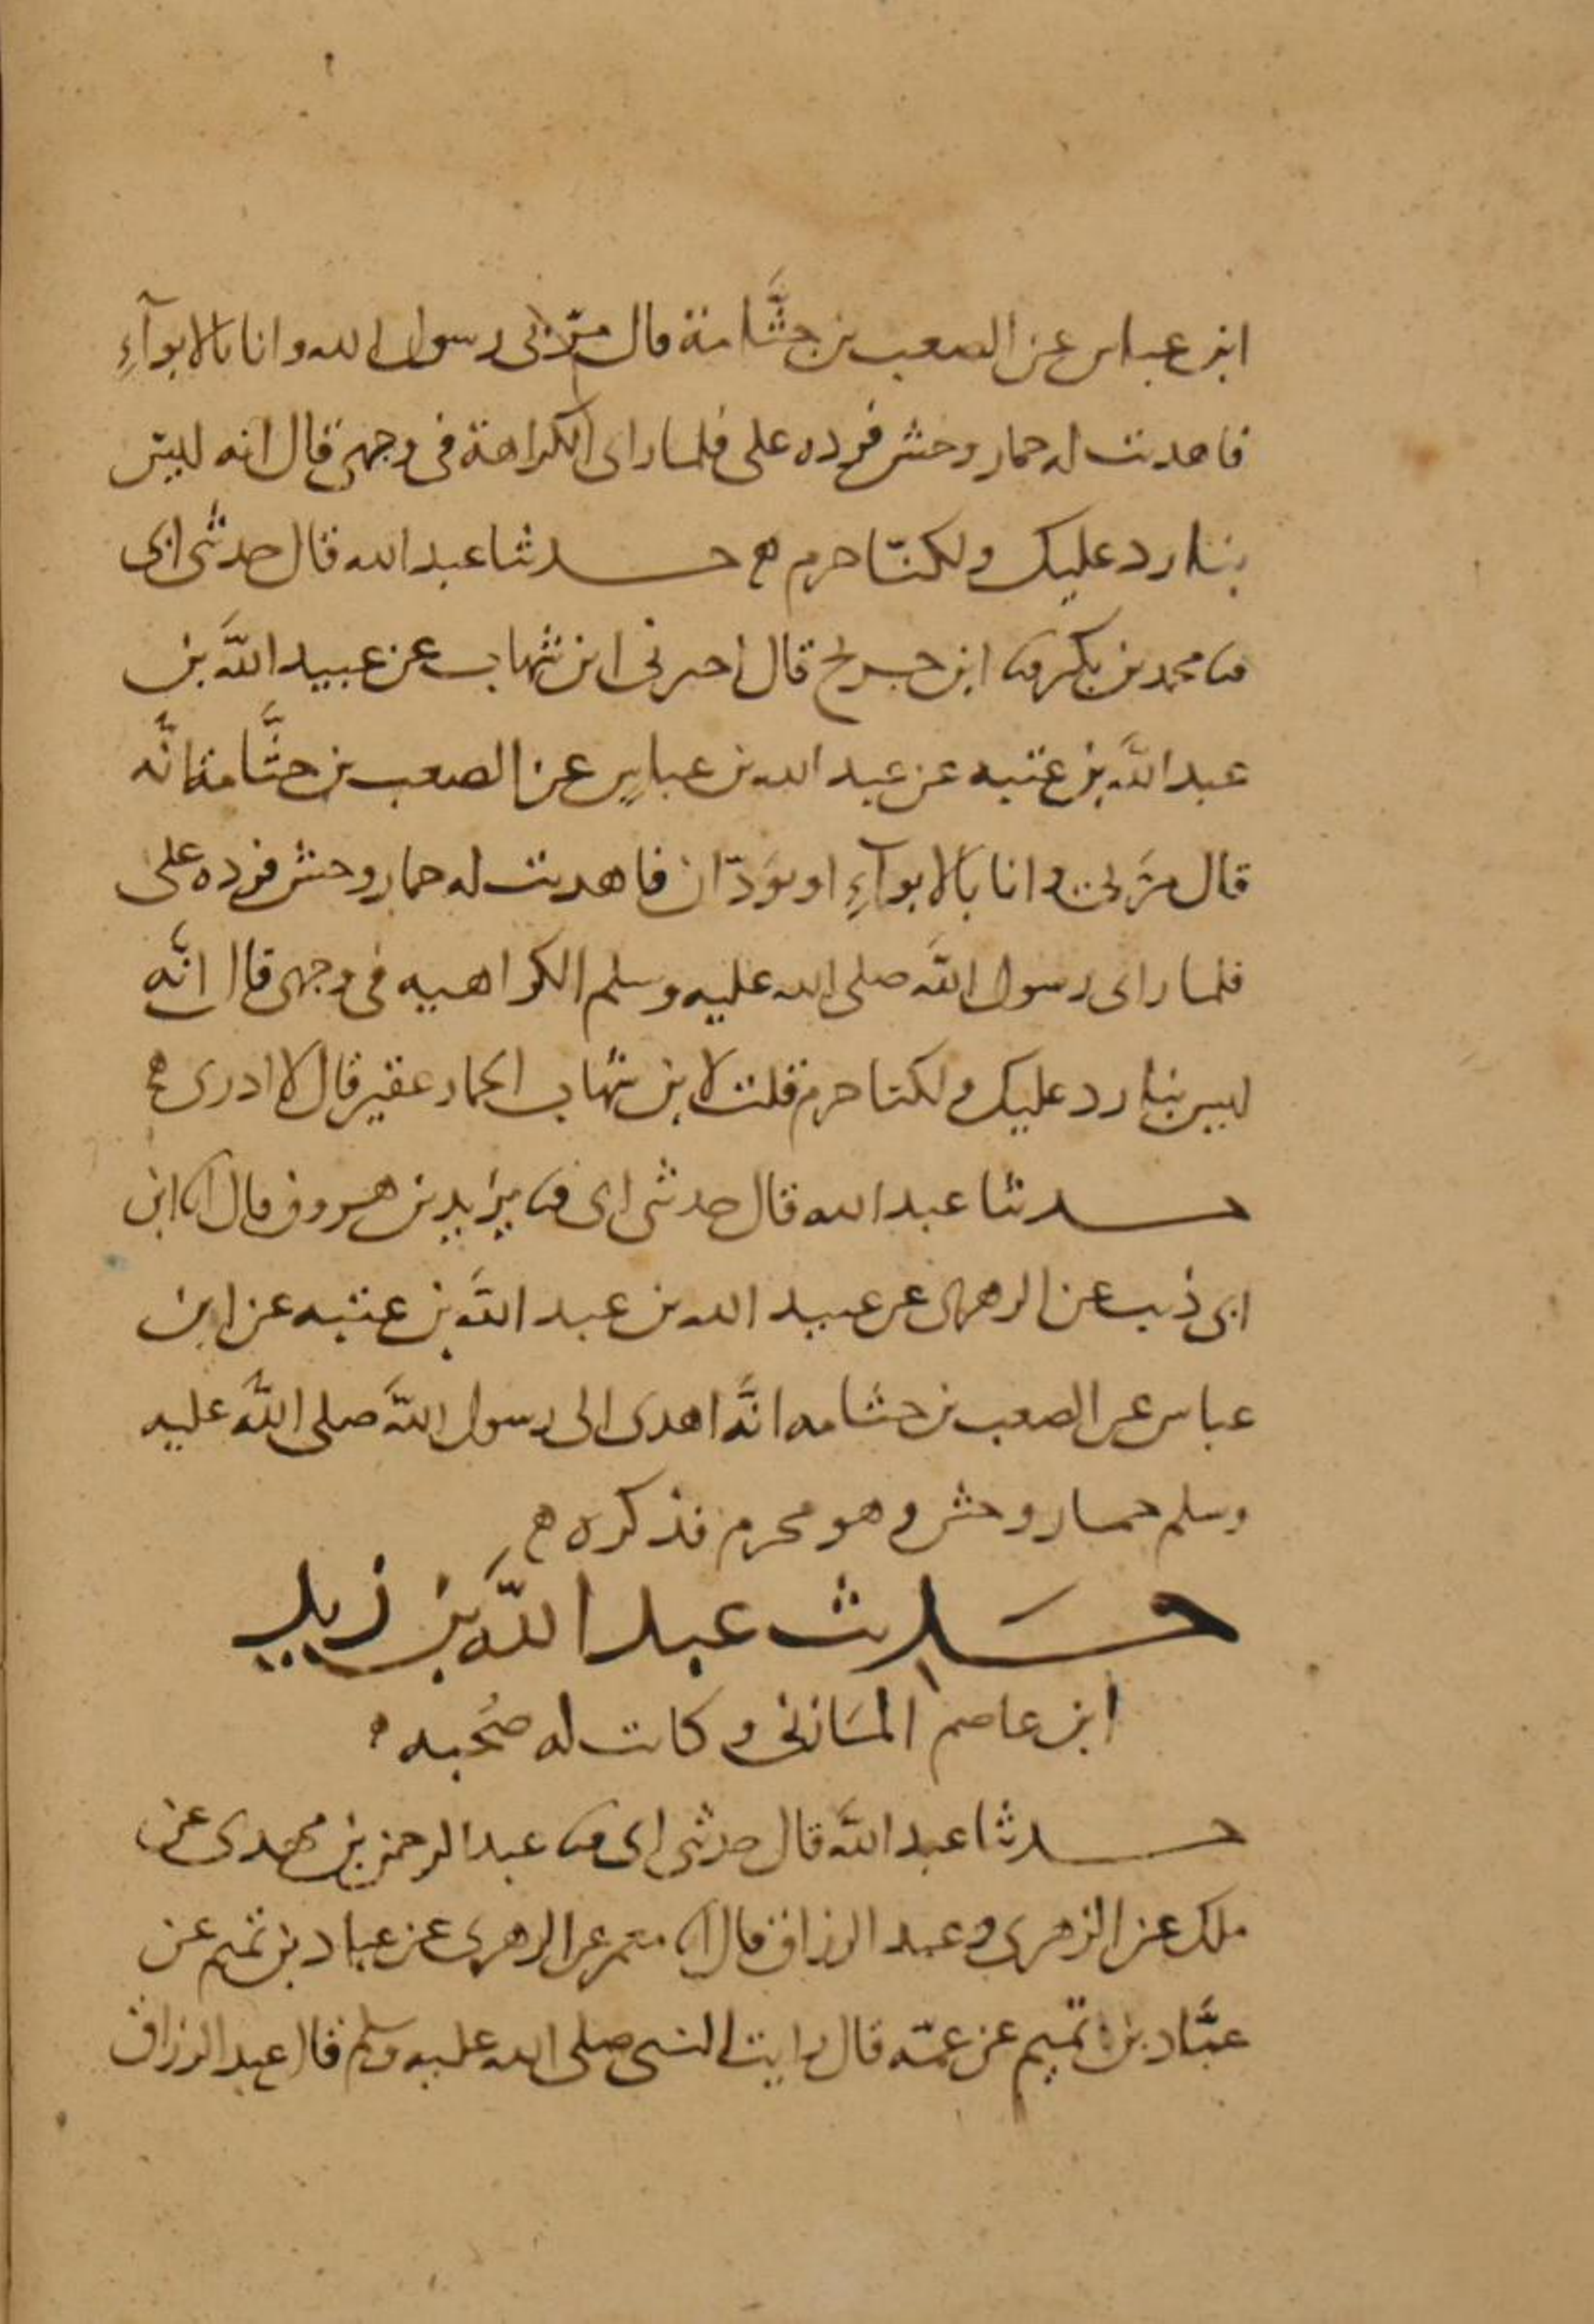 ابن عباس عن الصعب بن جثَّامة قال مرّ بى رسول الله وانا بالابوآءِ
فاهديت له حمار وحش فرده على فلما راى الكراهة فى وجهى قال انه ليس
بنا رد عليك ولكنّا حرم ه حدثنا عبد الله قال حدثنى ابى
ثنا محمد بن بكر ثنا ابن جريج قال اخبرنى ابن شهاب عن عبيد اللَّه بن
عبد اللَّه بن عتبه عن عبد الله بن عباس عن الصعب بن جثَّامة انَّه
قال مرَّ بى وانا بالابوآءِ او بوَدّان فاهديت له حمار وحش فرده على
فلما راى رسول اللَّه صلى الله عليه وسلم الكراهيه فى وجهى قال انَّه
ليس بنا رد عليك ولكنا حرم قلت لابن شهاب الحمار عقير قال لا ادرى ه
حدثنا عبد الله قال حدثنى ابى ثنا يزيد بن هرون قال انا ابن
ابى ذيب عن الزهرى عن عبيد الله بن عبد اللَّه بن عتبه عن ابن
عباس عن الصعب بن جثامه انَّه اهدى الى رسول اللَّه صلى اللَّه عليه
وسلم حمار وحش وهو محرم فذكره ه
حَديث عبد اللَّه بن زيد
ابن عاصم المَازنى وكانت له صُحبه ه
حدثنا عبد اللَّه قال حدثنى ابى ثنا عبد الرحمن بن مهدى عن
ملك عن الزهرى وعبد الرزاق قال انا معمر عن الزهرى عن عباد بن تميم عن
عبَّاد بن تميم عن عمّه قال رايت النبى صلى الله عليه وسلم قال عبد الرزاق